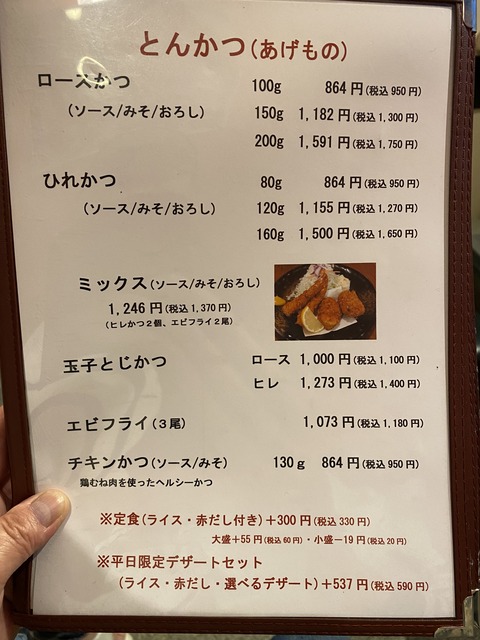 とんかつ(あげもの)
ロースかつ 100g 864円(税込950円)
(ソース/みそ/おろし) 150g 1,182円(税込1,300円)
200g 1,591円(税込1,750円)
ひれかつ 80g 864円(税込950円)
(ソース/みそ/おろし) 120g 1,155円(税込1,270円)
160g 1,500円(税込1,650円)
ミックス(ソース/みそ/おろし)
1,246円(税込1,370円)
(ヒレかつ2個、エビフライ2尾)
玉子とじかつ ロース 1,000円(税込1,100円)
ヒレ 1,273円(税込1,400円)
エビフライ(3尾) 1,073円(税込1,180円)
チキンかつ(ソース/みそ) 130g 864円(税込950円)
鶏むね肉を使ったヘルシーかつ
※定食(ライス・赤だし付き)+300円(税込330円)
大盛+55円(税込60円)・小盛-19円(税込20円)
※平日限定デザートセット
(ライス・赤だし・選べるデザート)+537円(税込590円)